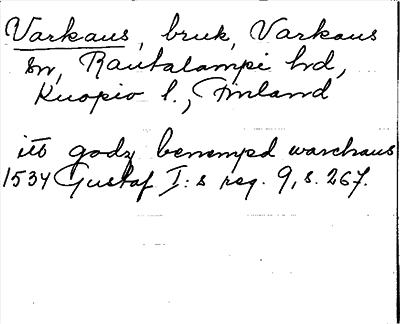 Varkaus, bruk, Varkaus
sn, Rautalampi hd,
Kuopio l., Finland
itt godz benempd warchaus
1534 Gustaf I:s reg. 9, s. 267.